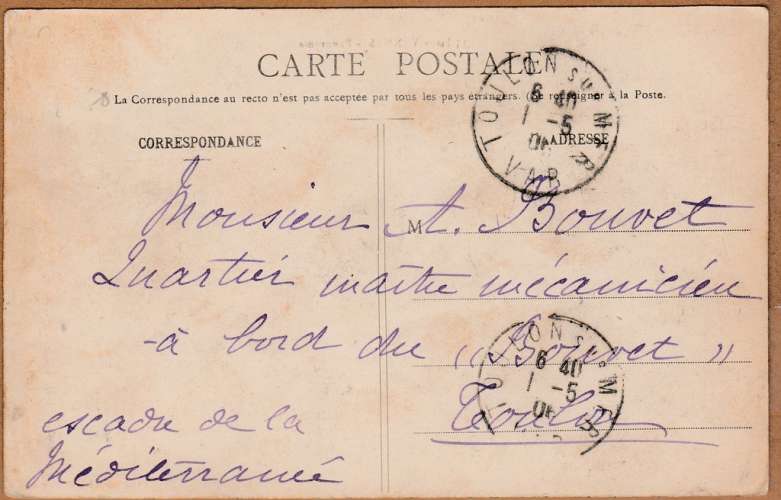 CARTE POSTALE
La Correspondance au recto n'est pas acceptée par tous les pays étrangers. (Se renseigner à la Poste.
CORRESPONDANCE
ADRESSE
TOULON SUR MER
6 40
1 -5
06
VAR
Monsieur M A. Bouvet
Quartier maître mécanicien
-à bord du "Bouvet"
Toulon
TOULON S MER
6 40
1 -5
06
escadre de la
Méditerranée